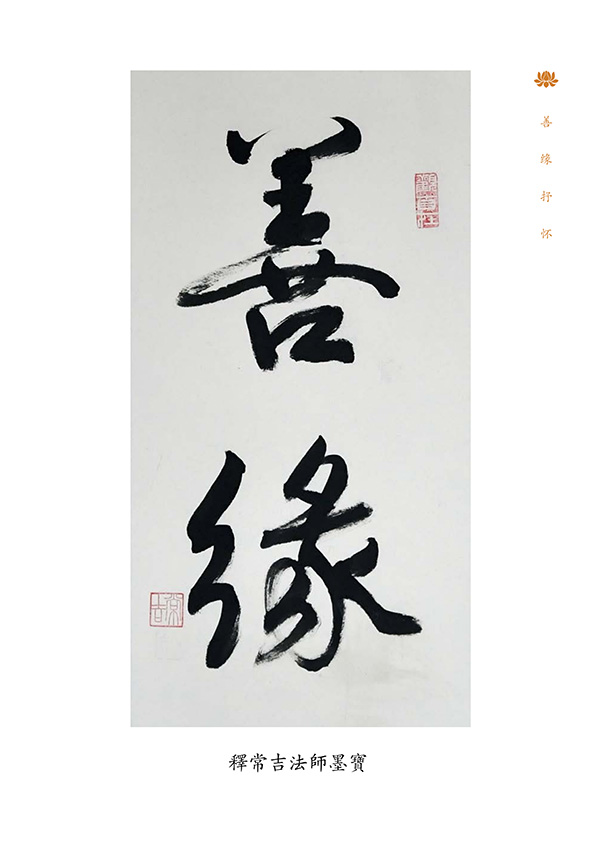 善缘抒怀
善
緣
常吉
釋常吉法師墨寶